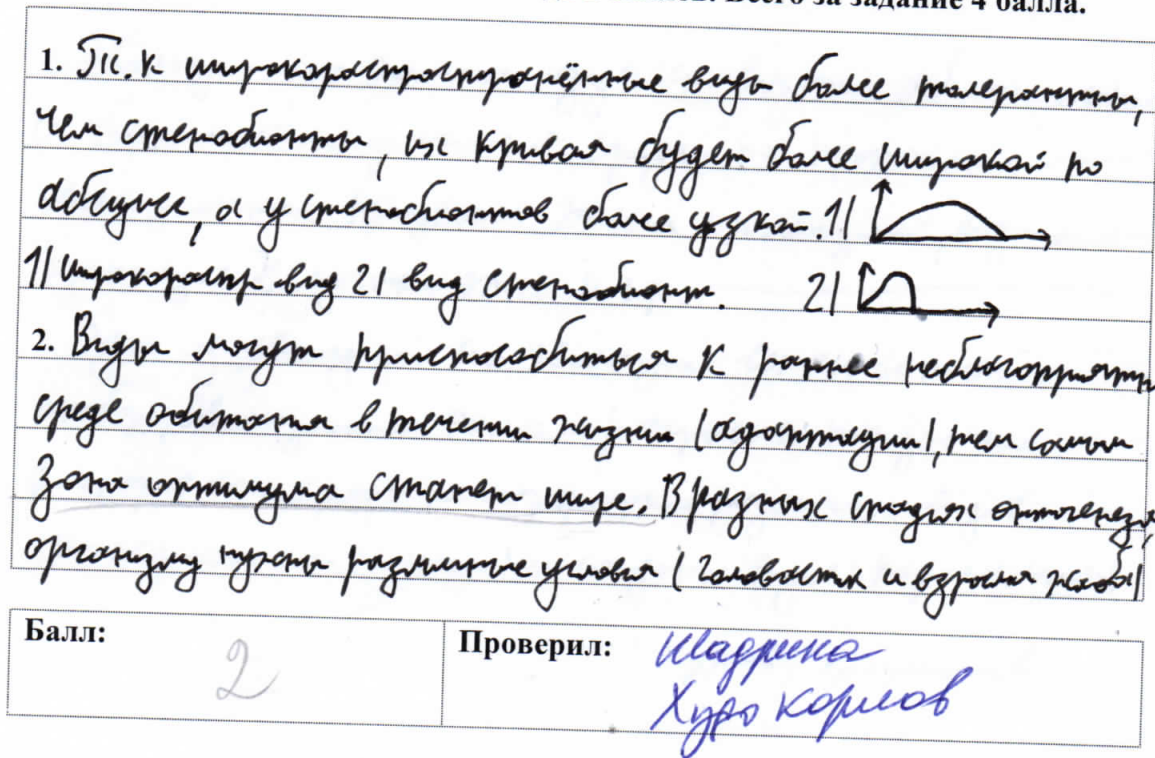 Всего за задание 4 балла.
1. Т.к широкораспространённые виды более толерантны,
чем стенобионты, их кривая будет более широкой по
абсциссе, а у стенобионтов более узкой. 1)
1) широкораспр вид 2) вид стенобионт. 2)
2. Виды могут приспособиться к раннее неблагоприятн
среде обитания в течении жизни (адаптации), тем самым
зона оптимума станет шире. В разных стадиях онтогенеза,
организму нужны различные условия (головастик и взрослая жаба)
Балл: 2
Проверил: Шадрина